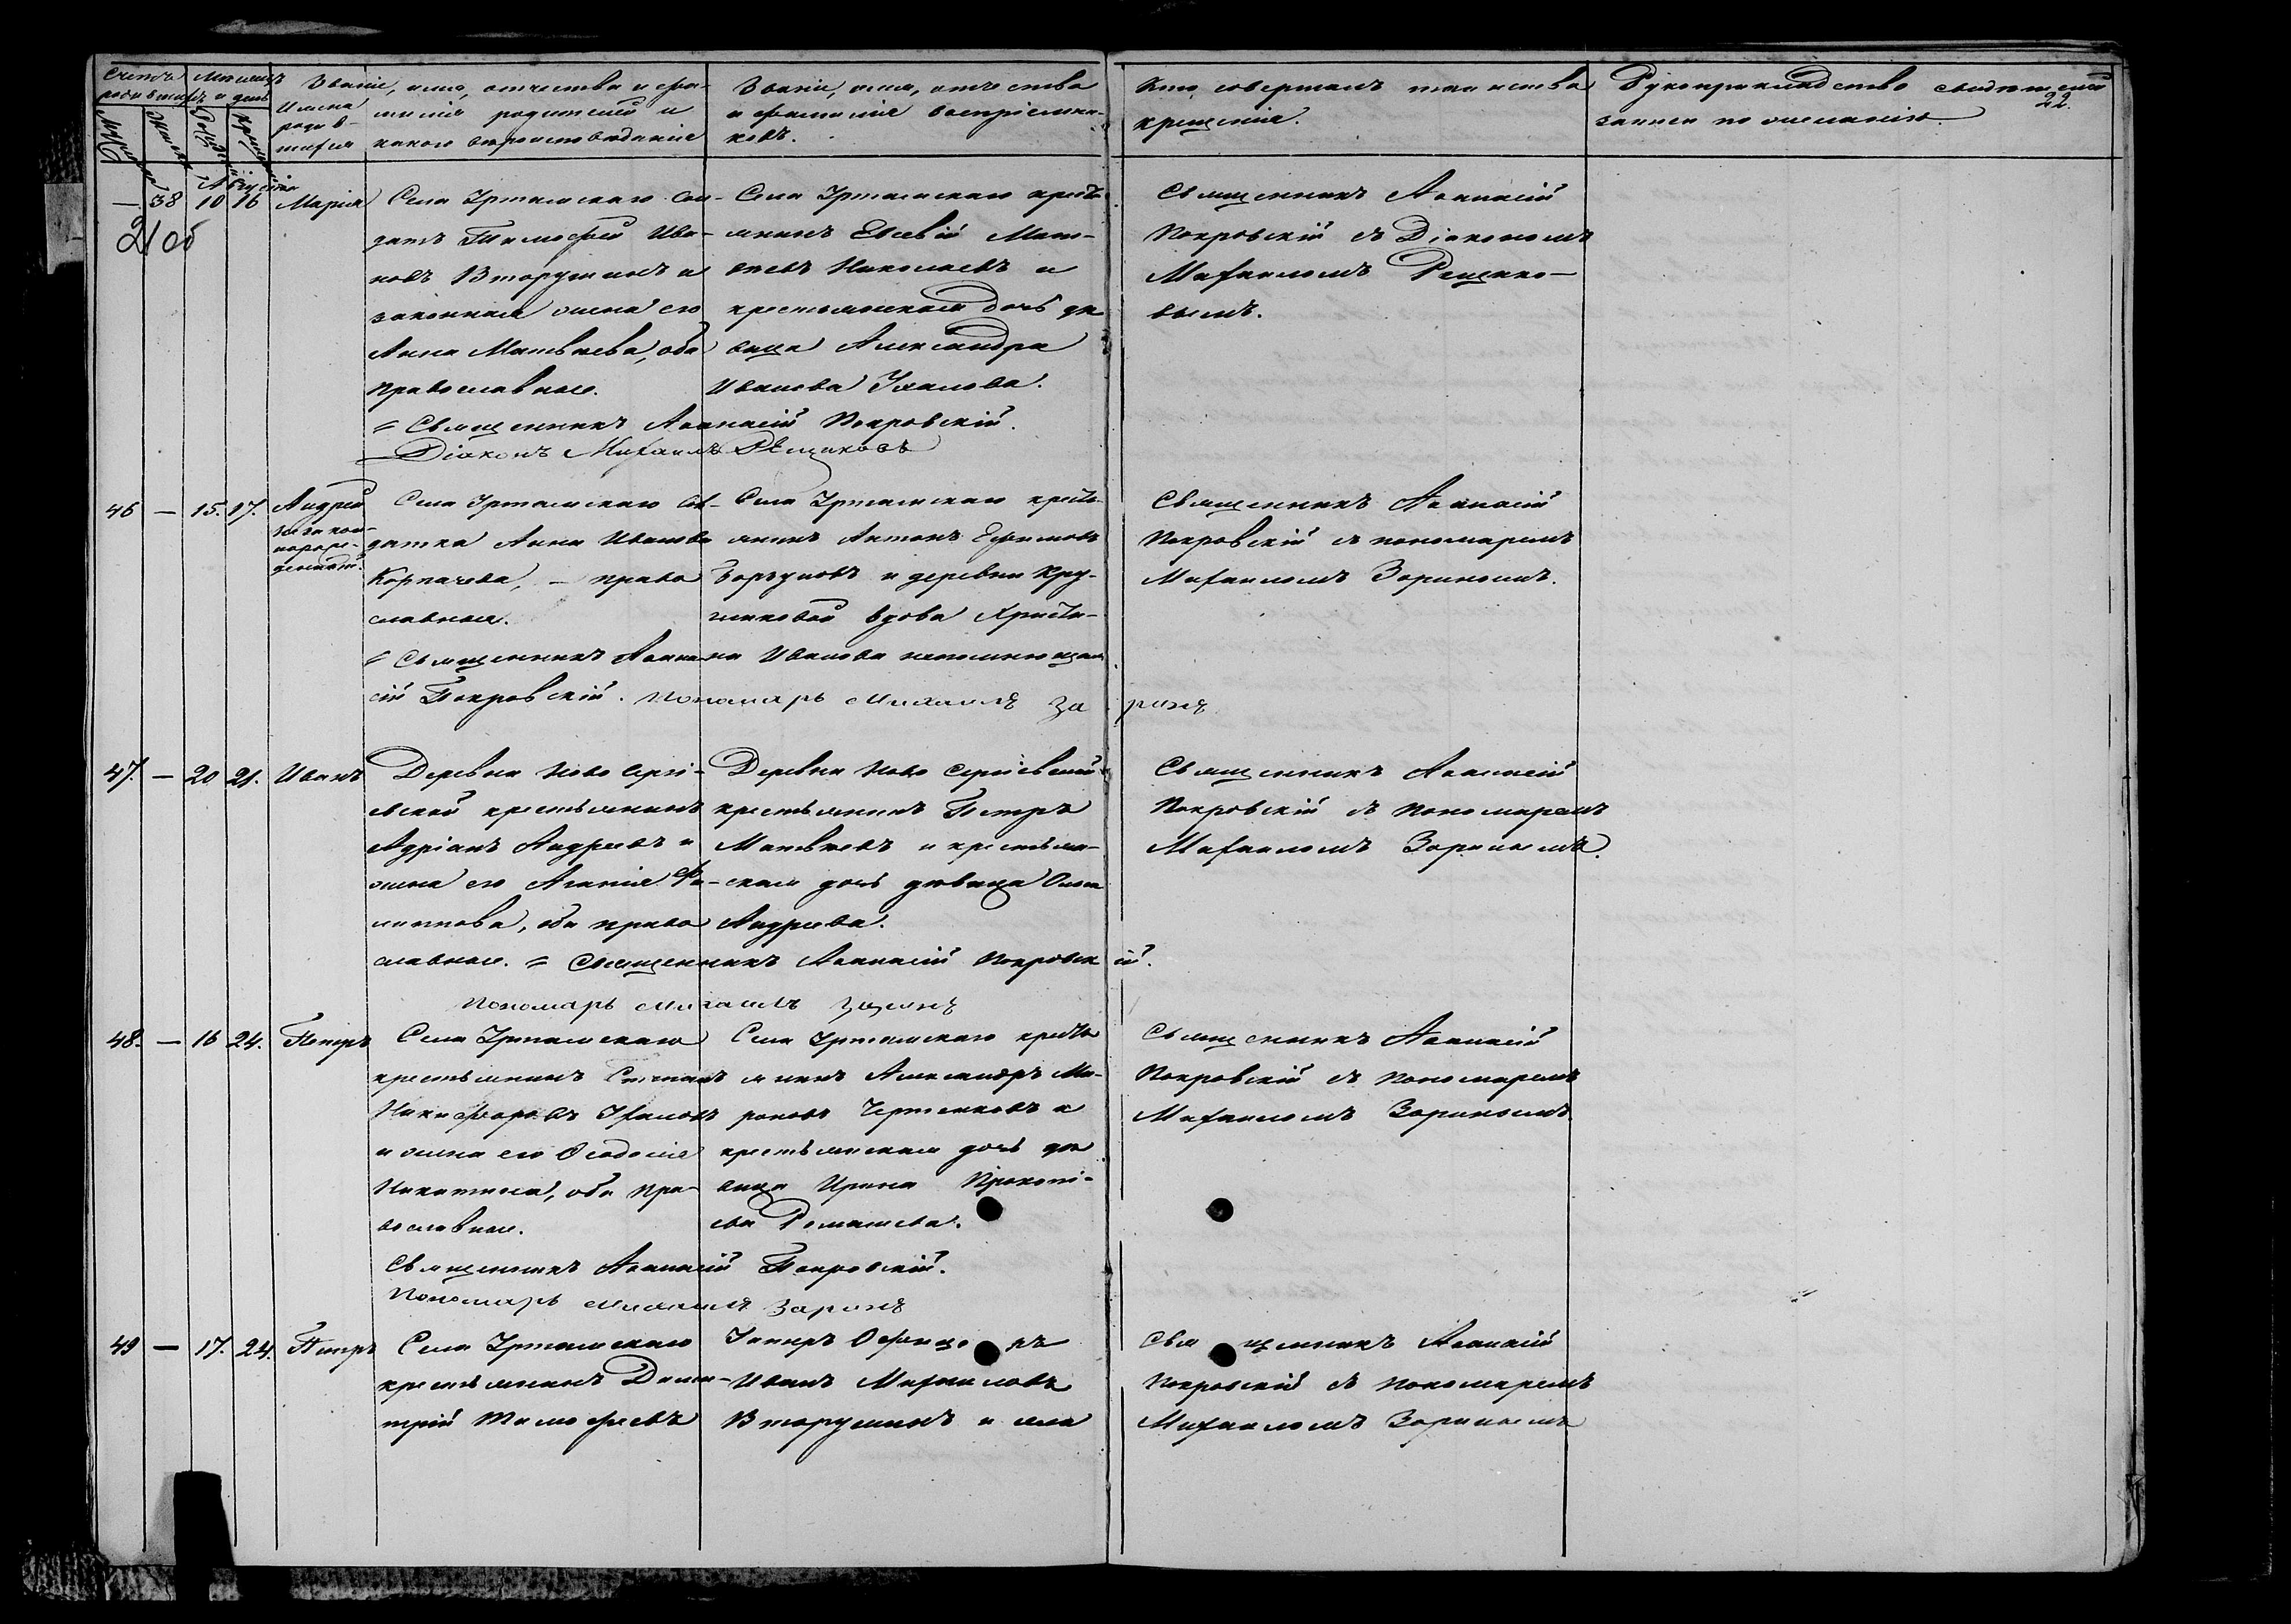 Счетъ родившихся
Мѣсяцъ и день
Мужеска
Женска
Рожденія
Крещенія
Имена родив-
шихся
Званіе, имя, отчество и фа-
милія родителей и
какого вѣроисповѣданія
Званіе, имя, отчество
и фамилія воспріемни-
ковъ.
Кто совершалъ таинство
крещенія.
Рукоприкладство свидѣтелей
записи по желанію.
22.
Августа
— 38 10 16 Марія
21 об
Села Урталискаго сол-
датъ Тимофей Ива-
новъ Вторушинъ и
законная жена его
Анна Матвѣева, оба
православные.
Села Урталискаго кресть
янинъ Евсевій Мат-
вѣевъ Николаевъ и
крестьянская дочь дѣ
вица Александра
Иванова Ухалова.
Священникъ Аѳанасій
Покровскій съ Діакономъ
Михаиломъ Рещико-
вымъ.
= Священникъ Аѳанасій Покровскій.
Діаконъ Михаилъ Рещиковъ
46 — 15. 17. Андрей
незакон-
норож-
денный.
Села Урталискаго сол-
датка Анна Иванова
Корпачева, — право
славная.
Села Урталискаго кресть
янинъ Антонъ Ефимовъ
и деревни Кру-
вдова Христи-
на Иванова
Священникъ Аѳанасій
Покровскій съ пономаремъ
Михаиломъ Зоринымъ.
= Священникъ Аѳана
сій Покровскій. Пономарь Михаилъ Зо ринъ
47. — 20 21. Иванъ
Деревни Ново Сергі-
евской крестьянинъ
Адріанъ Андреевъ и
жена его Агапія Фи-
липпова, оба право
славные.
Деревни Ново Сергіевской
крестьянинъ Петръ
Матвѣевъ и крестьян-
ская дочь дѣвица
Андреева.
Священникъ Аѳанасій
Покровскій съ Пономаремъ
Михаиломъ Зоринымъ.
= Священникъ Аѳанасій Покровск ій.
Пономарь Михаилъ Зоринъ
48. — 16 24. Петръ
Села Урталискаго
крестьянинъ Степанъ
Никифоровъ Ухаловъ
и жена его Ѳеодосія
Никитина, оба пра-
вославные.
Села Урталискаго кресть
янинъ Александръ Ми-
роновъ Чертенковъ и
крестьянская дочь дѣ
вица Ирина Прокопі-
ева Ромашева.
Священникъ Аѳанасій
Покровскій съ Пономаремъ
Михаиломъ Зоринымъ.
Священникъ Аѳанасій Покровскій.
Пономарь Михаилъ Зоринъ
49 — 17. 24. Петръ
Села Урталискаго
крестьянинъ Дими-
трій Тимофеевъ
Унтеръ Офицеръ
Иванъ Михаиловъ
Вторушинъ и
Священникъ Аѳанасій
Покровскій съ Пономаремъ
Михаиломъ Зоринымъ